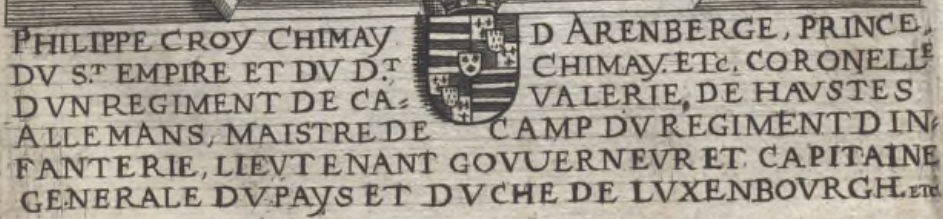 PHILIPPE CROY CHIMAY D ARENBERGE, PRINCE,
DV S.T EMPIRE ET DV D.T CHIMAY. ETC. CORONELLE
D VN REGIMENT DE CA= VALERIE, DE HAVSTES
ALLEMANS, MAISTRE DE CAMP DV REGIMENT D IN=
FANTERIE, LIEVTENANT GOVUERNEVR ET CAPITAINE
GENERALE DV PAYS ET DVCHE DE LVXENBOVRGH. ETC